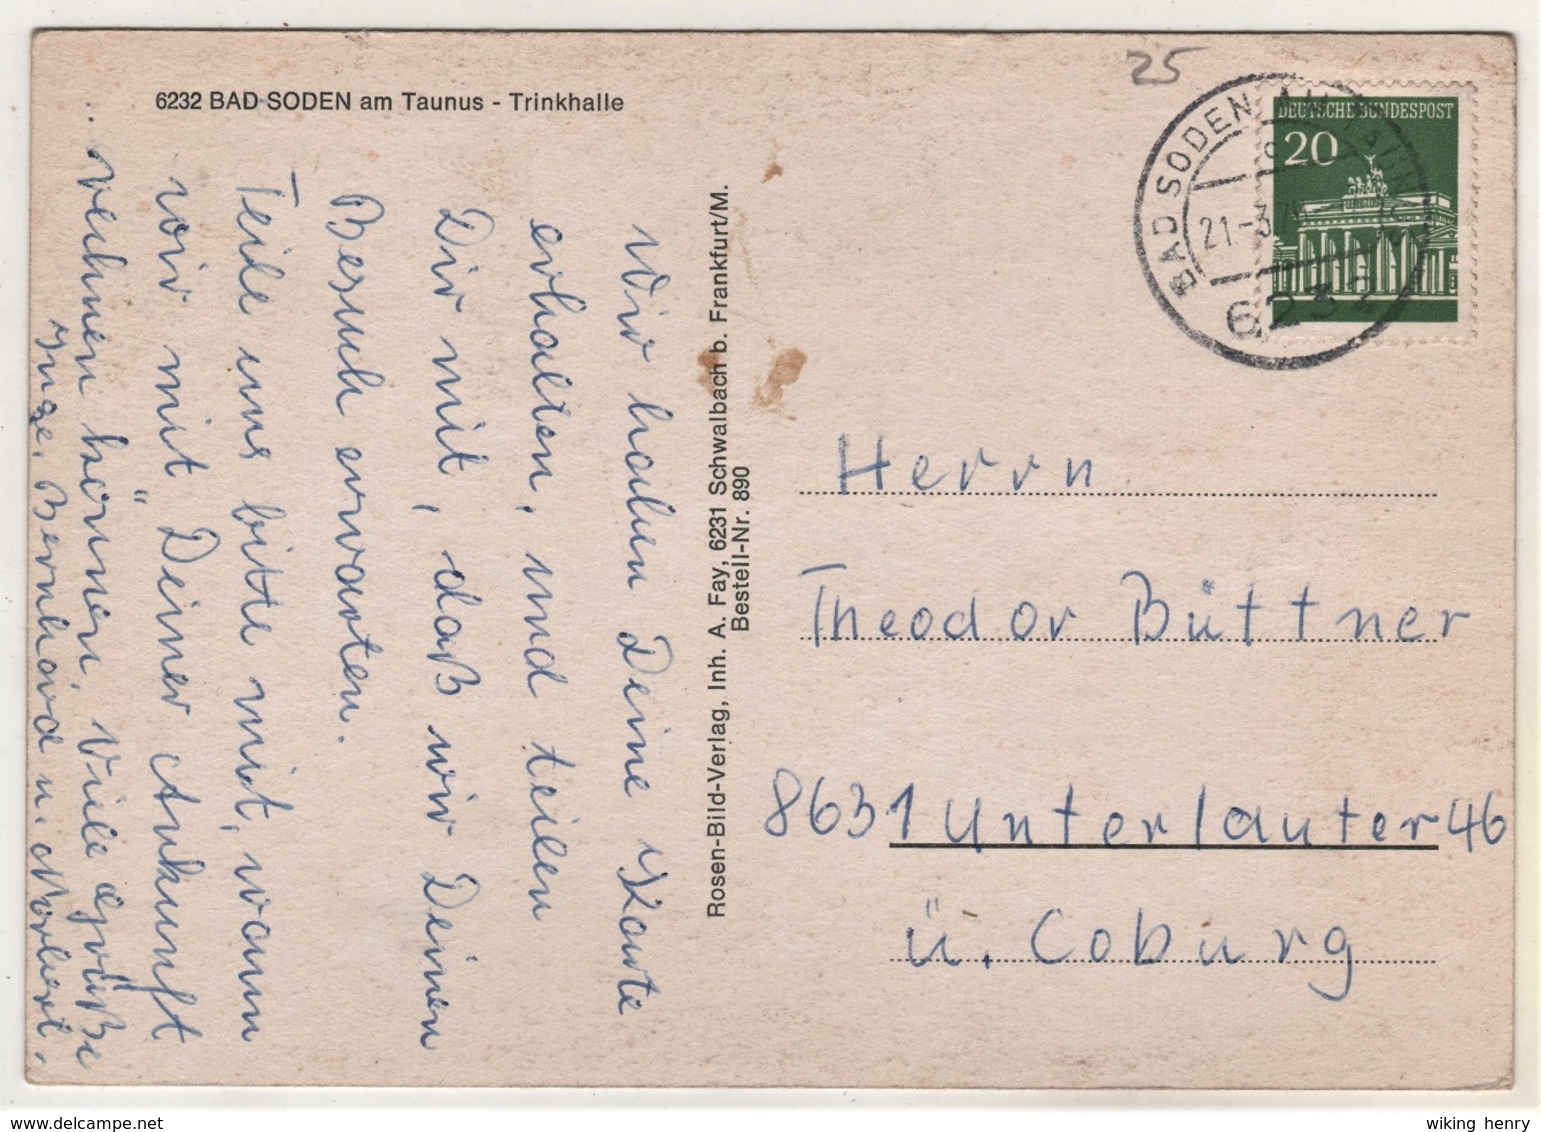 25
6232 BAD SODEN am Taunus - Trinkhalle
DEUTSCHE BUNDESPOST
20
BAD SODEN AM TAUNUS
21.-3.
6232
Wir haben Deine Karte
erhalten, und teilen
Dir mit, daß wir Deinen
Besuch erwarten.
Teile uns bitte mit, wann
wir mit Deiner Ankunft
rechnen können. Viele Grüße
Inge, Bernhard u. Norbert.
Rosen-Bild-Verlag, Inh. A. Fay, 6231 Schwalbach b. Frankfurt/M.
Bestell-Nr. 890
Herrn
Theodor Büttner
8631 Unterlauter 46
ü. Coburg
wiking henry